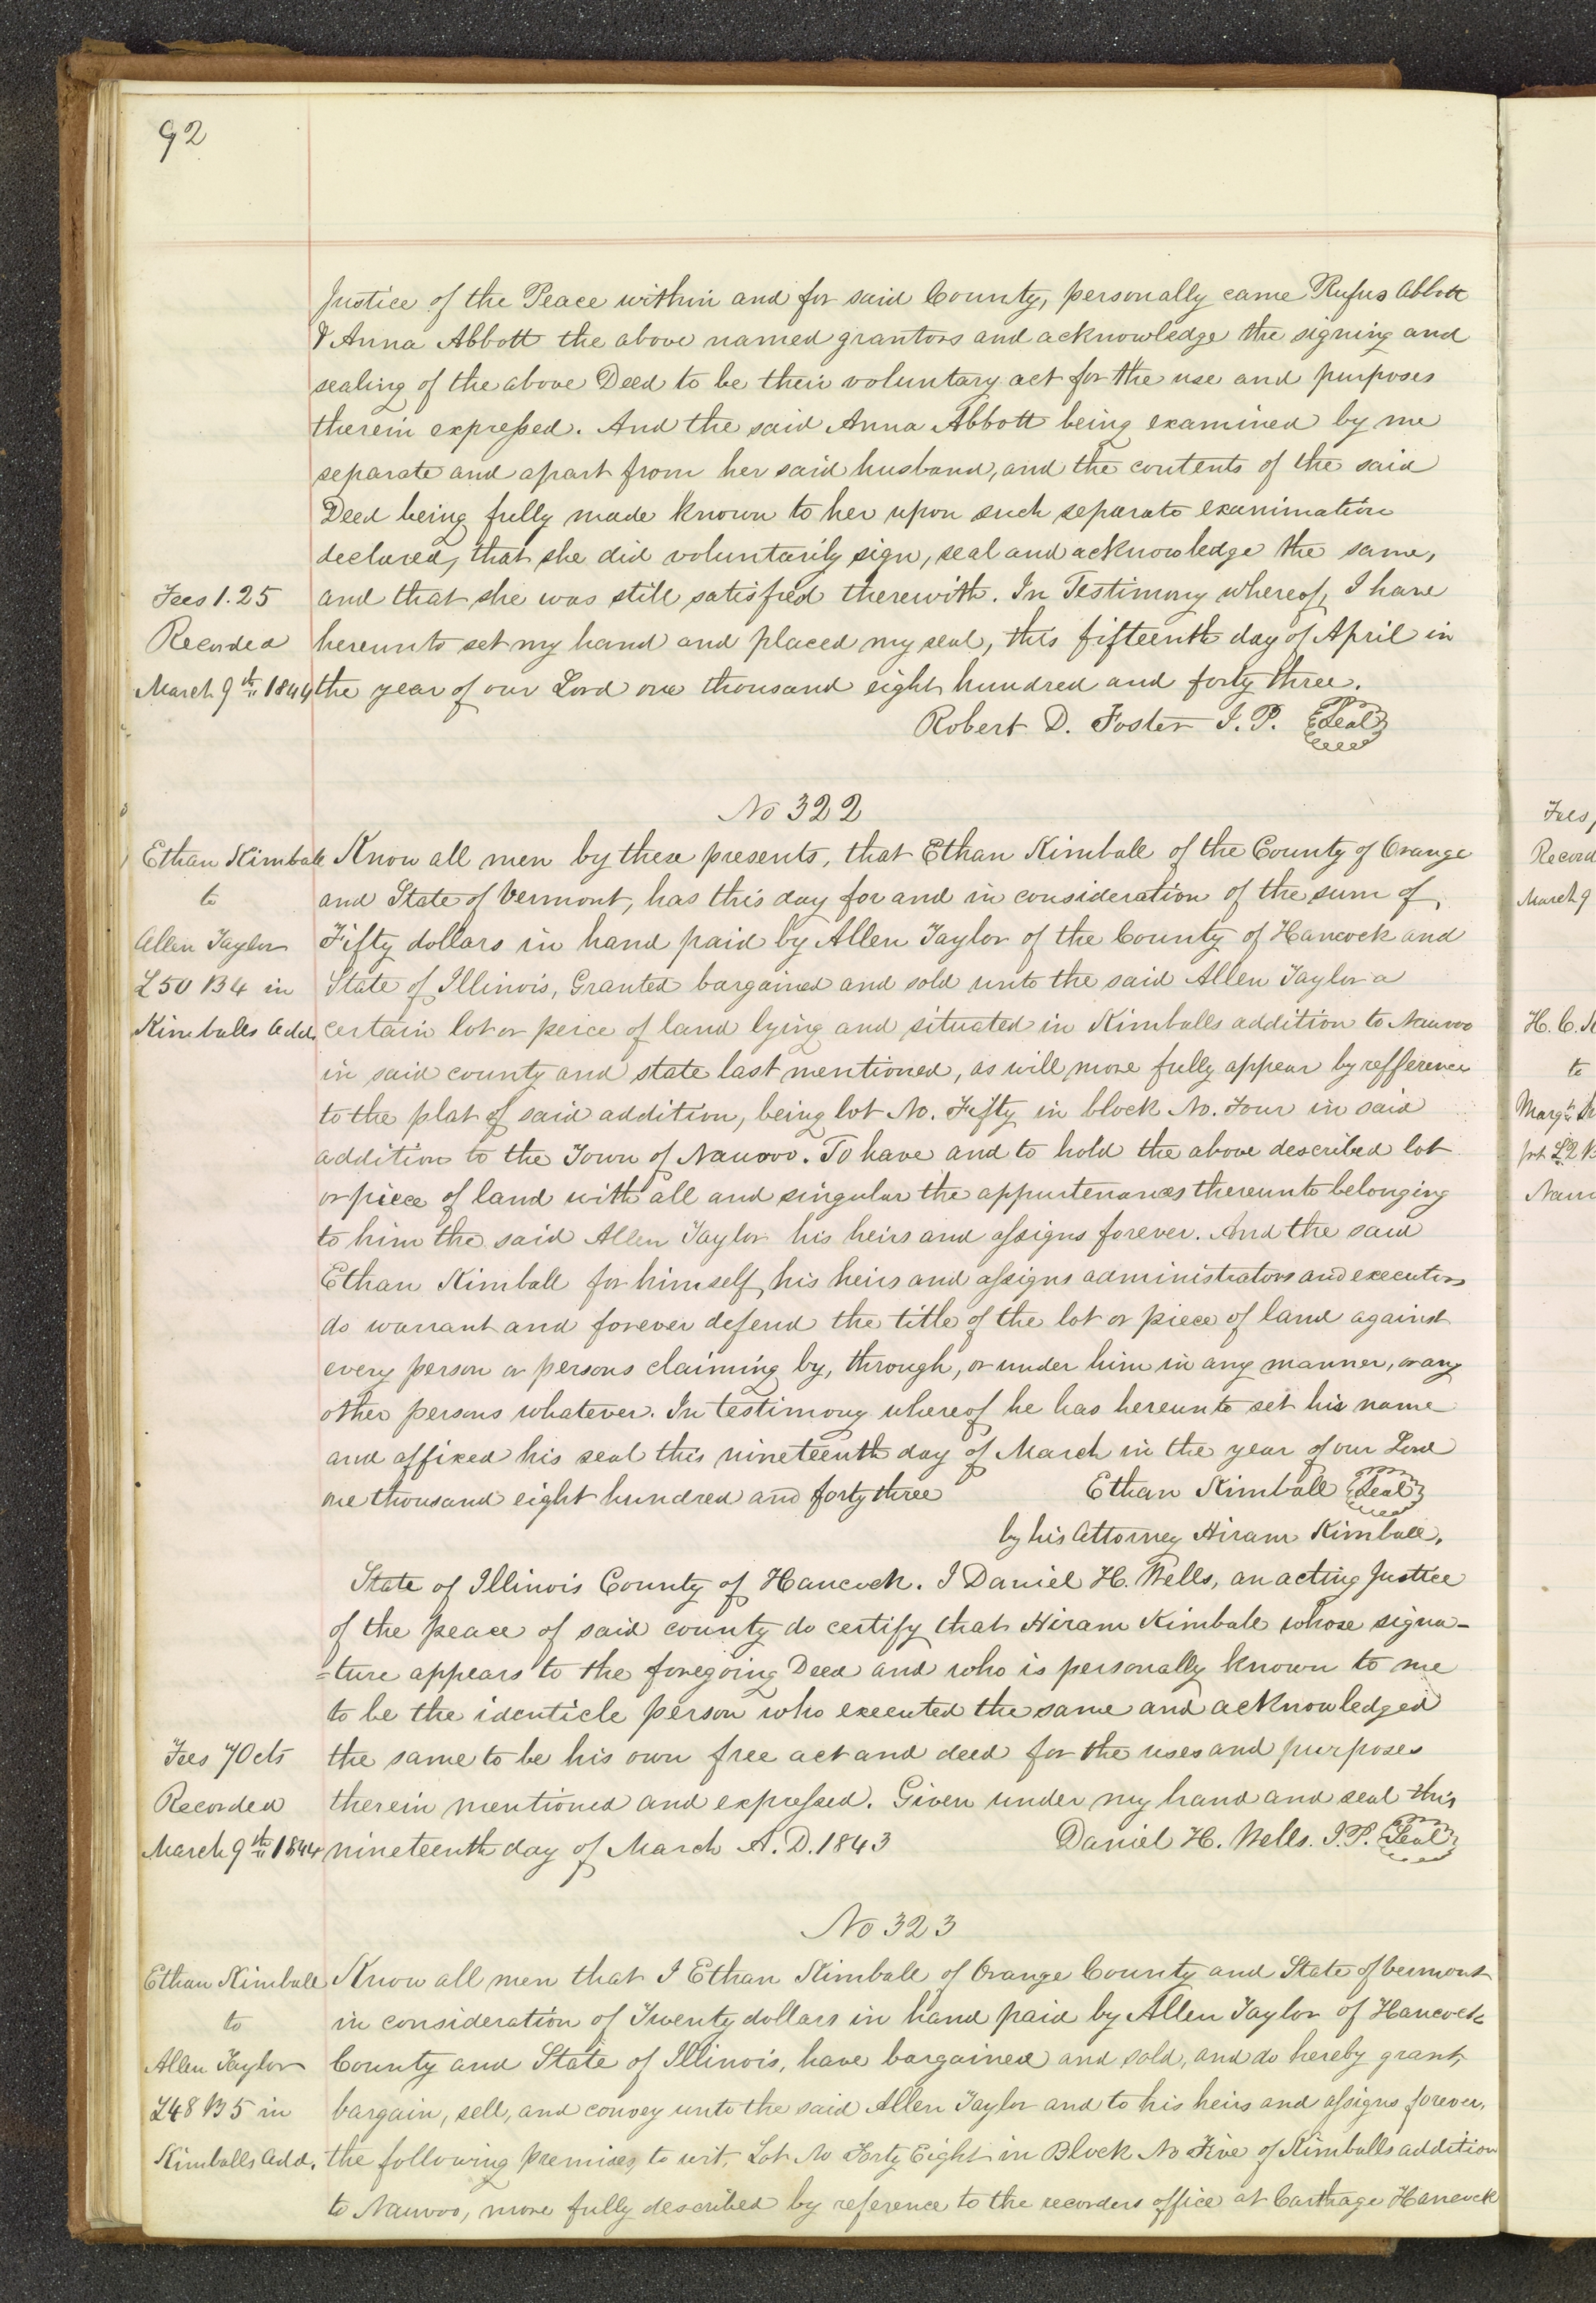 92
Justice of the Peace within and for said County, personally came Rufus Abbott
& Anna Abbott the above named grantors and acknowledge the signing and
sealing of the above Deed to be their voluntary act for the use and purposes
therein expressed. And the said Anna Abbott being examined by me
separate and apart from her said husband, and the contents of the said
Deed being fully made known to her upon such separate examination
declared, that she did voluntarily sign, seal and acknowledge the same,
Fees 1.25 and that she was still satisfied therewith. In Testimony whereof, I have
Recorded hereunto set my hand and placed my seal, this fifteenth day of April in
March 9th 1844 the year of our Lord one thousand eight hundred and forty three.
Robert D. Foster J.P. Seal
No 322
Ethan Kimball Know all men by these presents, that Ethan Kimball of the County of Orange
to and State of Vermont, has this day for and in consideration of the sum of
Allen Taylor Fifty dollars in hand paid by Allen Taylor of the County of Hancock and
L50 B4 in State of Illinois, Granted bargained and sold unto the said Allen Taylor a
Kimballs Add. certain lot or peice of land lying and situated in Kimballs addition to Nauvoo
in said county and state last mentioned, as will more fully appear by refference
to the plat of said addition, being lot No. Fifty in block No. Four in said
addition to the Town of Nauvoo. To have and to hold the above described lot
or piece of land with all and singular the appurtenances thereunto belonging
to him the said Allen Taylor his heirs and assigns forever. And the said
Ethan Kimball for himself, his heirs and assigns administrators and executors
do warrant and forever defend the title of the lot or piece of land against
every person or persons claiming by, through, or under him in any manner, or any
other persons whatever. In testimony whereof he has hereunto set his name
and affixed his seal this nineteenth day of March in the year of our Lord
one thousand eight hundred and forty three Ethan Kimball Seal
by his Attorney Hiram Kimball.
State of Illinois County of Hancock. I Daniel H. Wells, an acting Justice
of the peace of said county do certify that Hiram Kimball whose signa-
=ture appears to the foregoing Deed and who is personally known to me
to be the identicle person who executed the same and acknowledged
Fees 70cts the same to be his own free act and deed for the uses and purposes
Recorded therein mentioned and expressed. Given under my hand and seal this
March 9th 1844 nineteenth day of March A.D. 1843 Daniel H. Wells. J.P. Seal
No 323
Ethan Kimball Know all men that I Ethan Kimball of Orange County and State of Vermont
to in consideration of Twenty dollars in hand paid by Allen Taylor of Hancock
Allen Taylor County and State of Illinois, have bargained and sold, and do hereby grant,
L48 B5 in bargain, sell, and convey unto the said Allen Taylor and to his heirs and assigns forever,
Kimballs Add. the following premises, to wit, Lot No Forty Eight in Block No Five of Kimballs addition
to Nauvoo, more fully described by reference to the recorders office at Carthage Hancock
Fees
Record
March 9
H. C.
to
L2